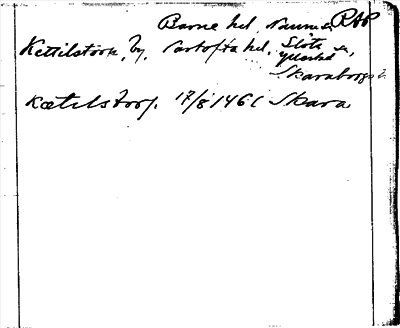 Barne hd Naum s, RAP
Kettilstorp, by, Vartofta hd, Slöta sn,
Skaraborgs l.
Kætilstorp. 17/8 1461 Skara